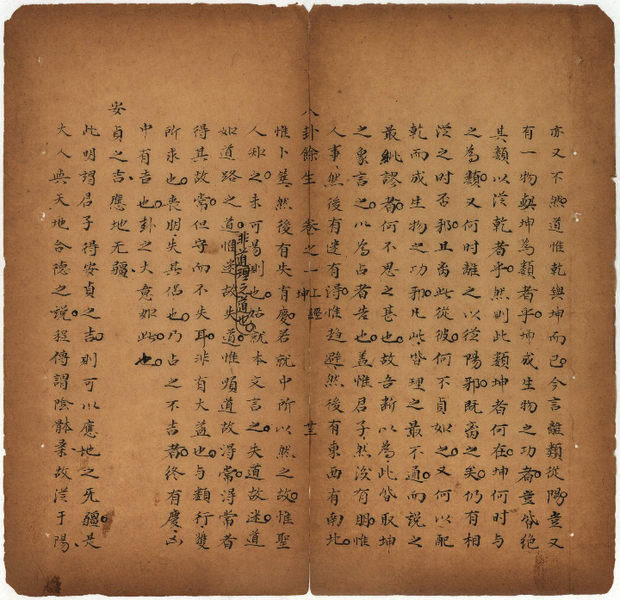 亦又不然道惟乾與坤而已今言離類從陽豈又
有一物與坤為類者乎坤成生物之功者豈皆絕
其類以從乾者乎然則此類坤者何在坤何時与
之為類又何時離之以從陽邪既啇之矣仍有相
從之時否邪且啇此從彼何不貞如之又何以配
乾而成生物之功邪凡此皆理之最不通而說之
最紕謬者何不思之甚也故吾斷以為此皆取坤
之象言之以為占者告也盖惟君子然後有朋惟
人事然後有迷有得惟趋避然後有東西有南北
八卦餘生 卷之一 上經 坤 廿
惟卜筮然後有失有慶若就中所以然之故惟聖
人知之未可易則也姑就本文言之失道故迷道
如道路之道惟迷故失道惟順道故得常得常者
非道理之道也
得其故常但守而不失耳非有大益也与類行雙
所求也喪朋失其侶也乃占之不吉者終有慶凶
中有吉也卦之大意如此也
安貞之吉應地无疆
此明謂君子得安貞之吉則可以應地之无疆是
大人與天地合德之說程傳謂陰體柔故從于陽